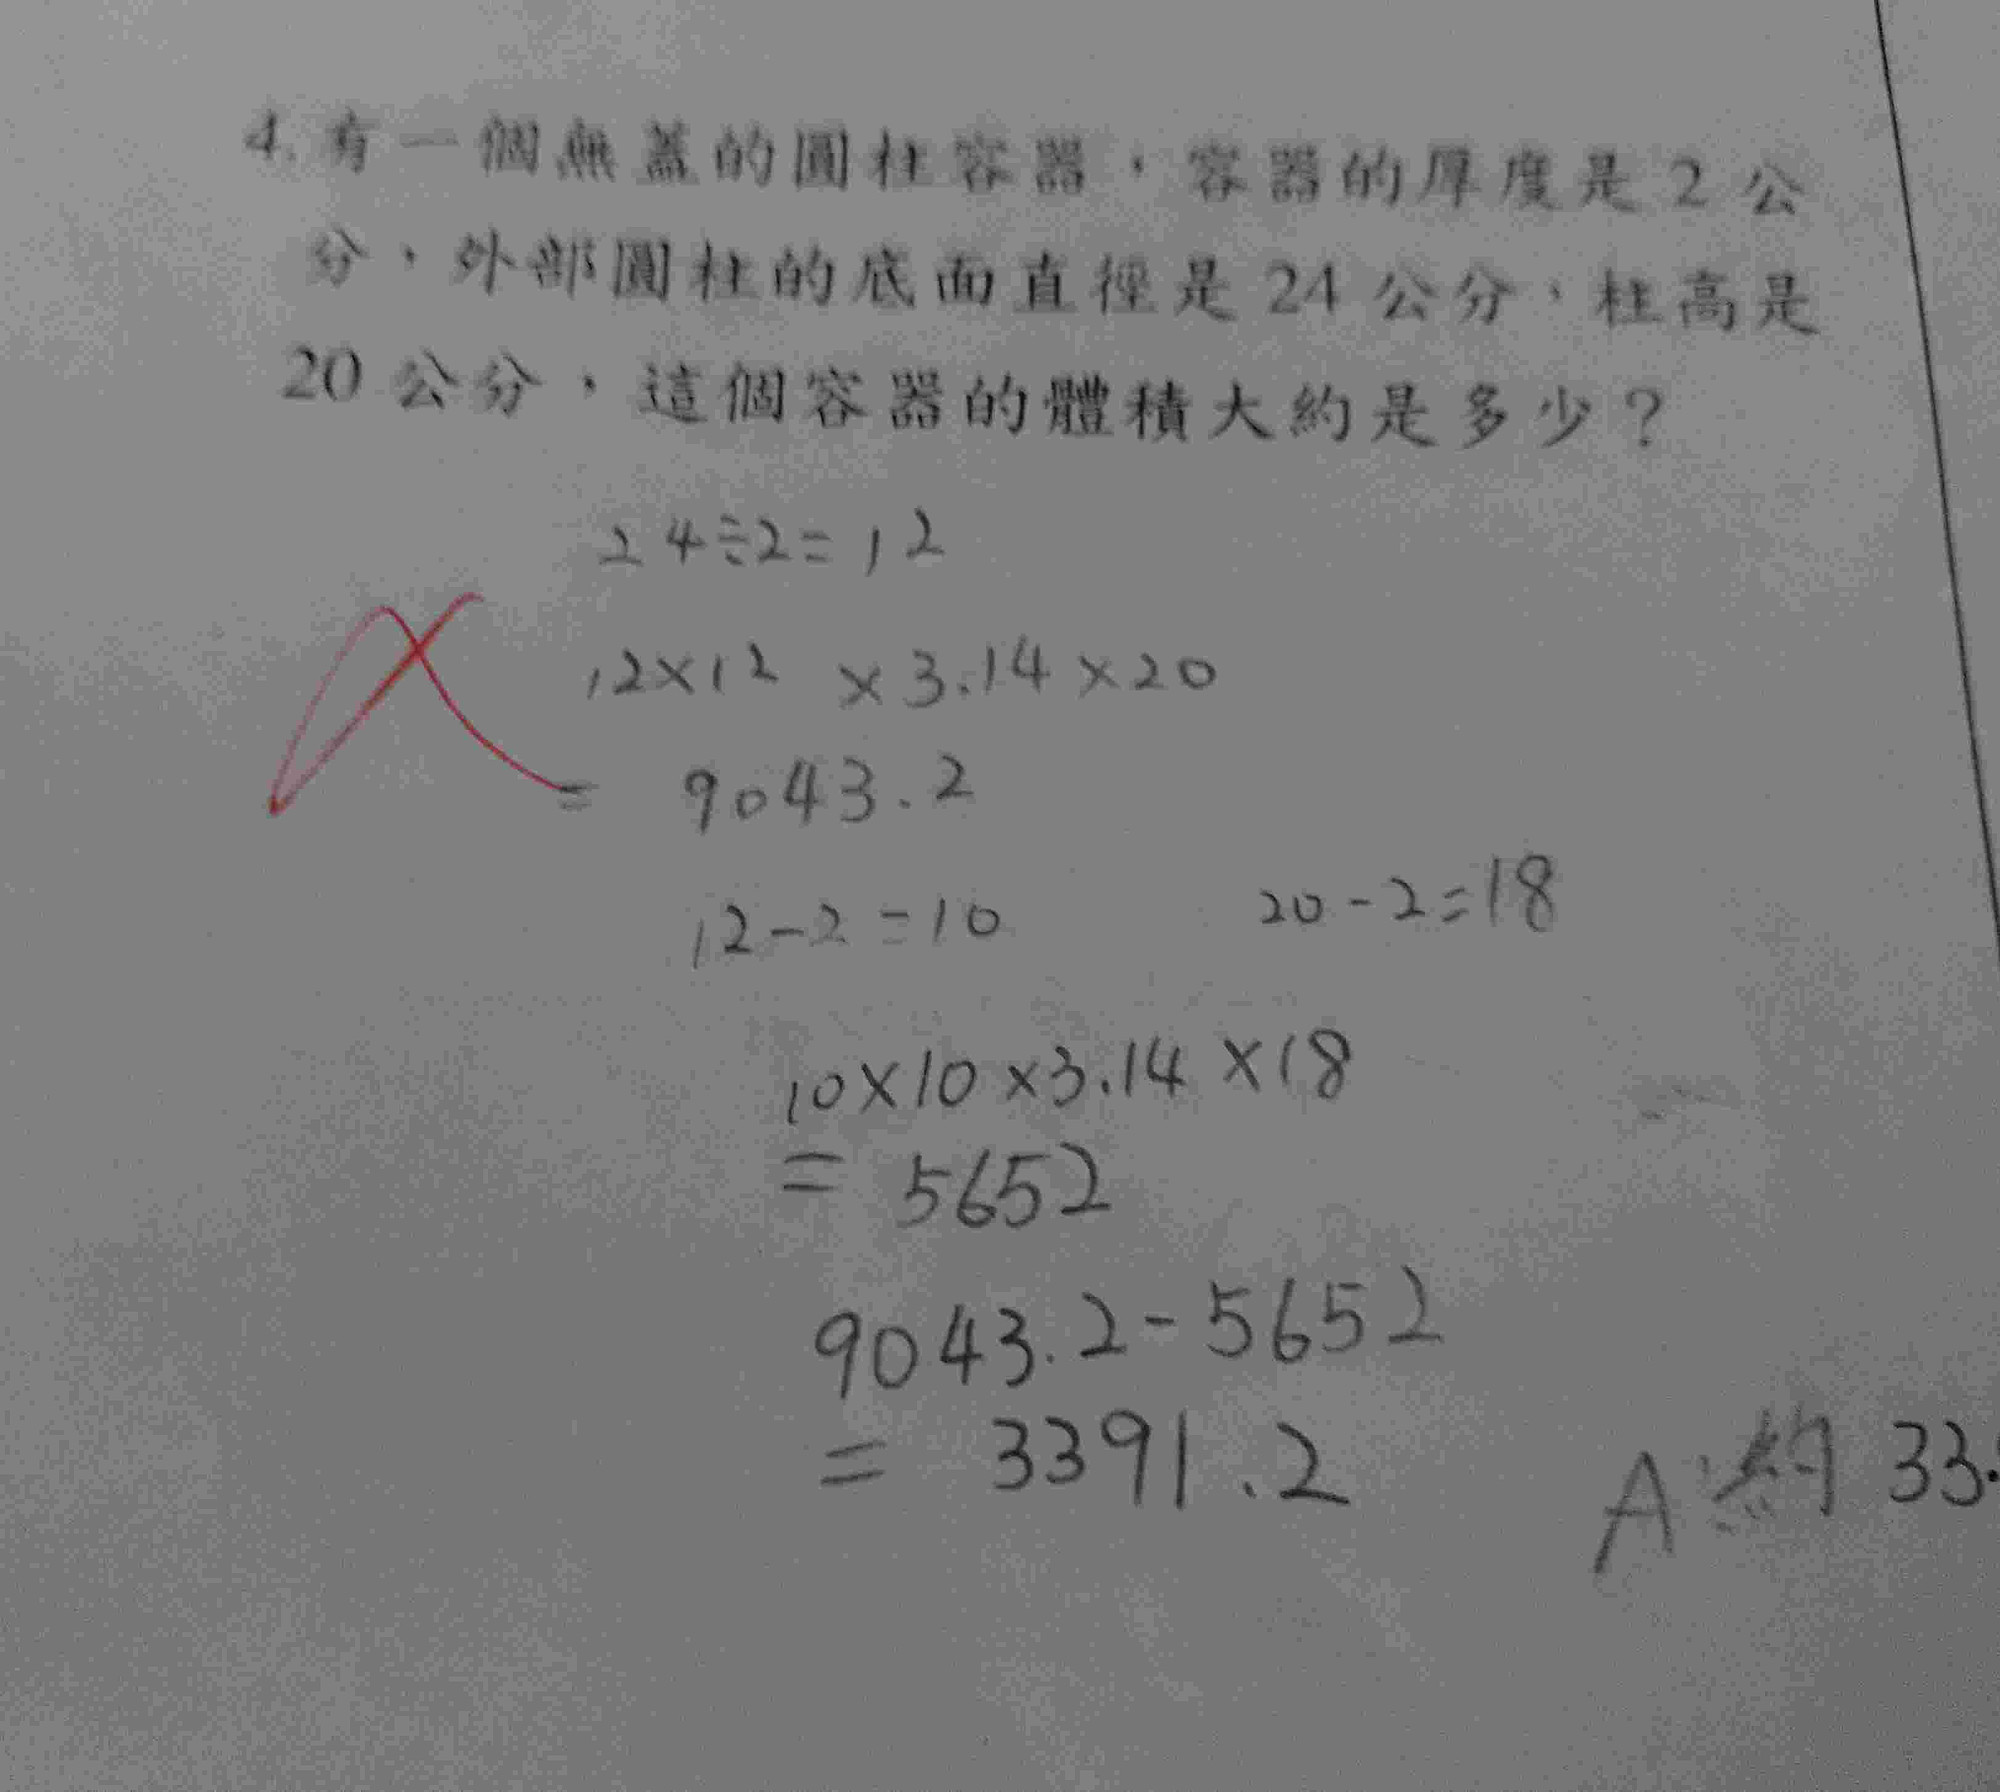 4. 有一個無蓋的圓柱容器，容器的厚度是2公
分，外部圓柱的底面直徑是24公分，柱高是
20公分，這個容器的體積大約是多少？
24÷2=12
12×12×3.14×20
= 9043.2
12-2=10 20-2=18
10×10×3.14×18
= 5652
9043.2-5652
= 3391.2
A:約33